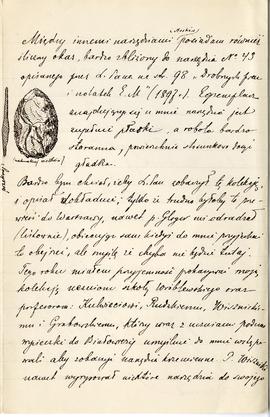 Między innemi narzędziami posiadam również
śliczny okaz, bardzo zbliżony do narzędzia № 43
opisanego przez L. Pana na str. 98 „Drobnych prac
i notatek E. M" (1897 r.). Egzemplarz
znajdujący się u mnie narzędzia jest
zupełnie płaski, a robota bardzo
staranna, powierzchnia stosunkowo dosyć
gładka.
Bardzo bym chciał, żeby L. Pan zobaczył tę kolekcję
i opisał dokładnie; tylko że trudno byłoby to prze-
wieźć do Warszawy, nawet p. Gloger mi odradzał
(listownie), obiecując sam kiedyś do mnie przyjechać
to obejrzeć, ale myślę że chyba nie będzie tutaj.
Tego roku miałem przyjemność pokazywać moją
kolekcję uczniom szkoły Wróblewskiego oraz
profesorom: Kulwieciowi, Rudzkiemu, Wiśnickie-
mu i Grabowskiemu, którzy wraz z uczniami podczas
wycieczki do Białowieży umyślnie do mnie wstępo-
wali aby zobaczyć narzędzia krzemienne. P. Wiśnicki
nawet wyrysował niektóre narzędzia do swojego